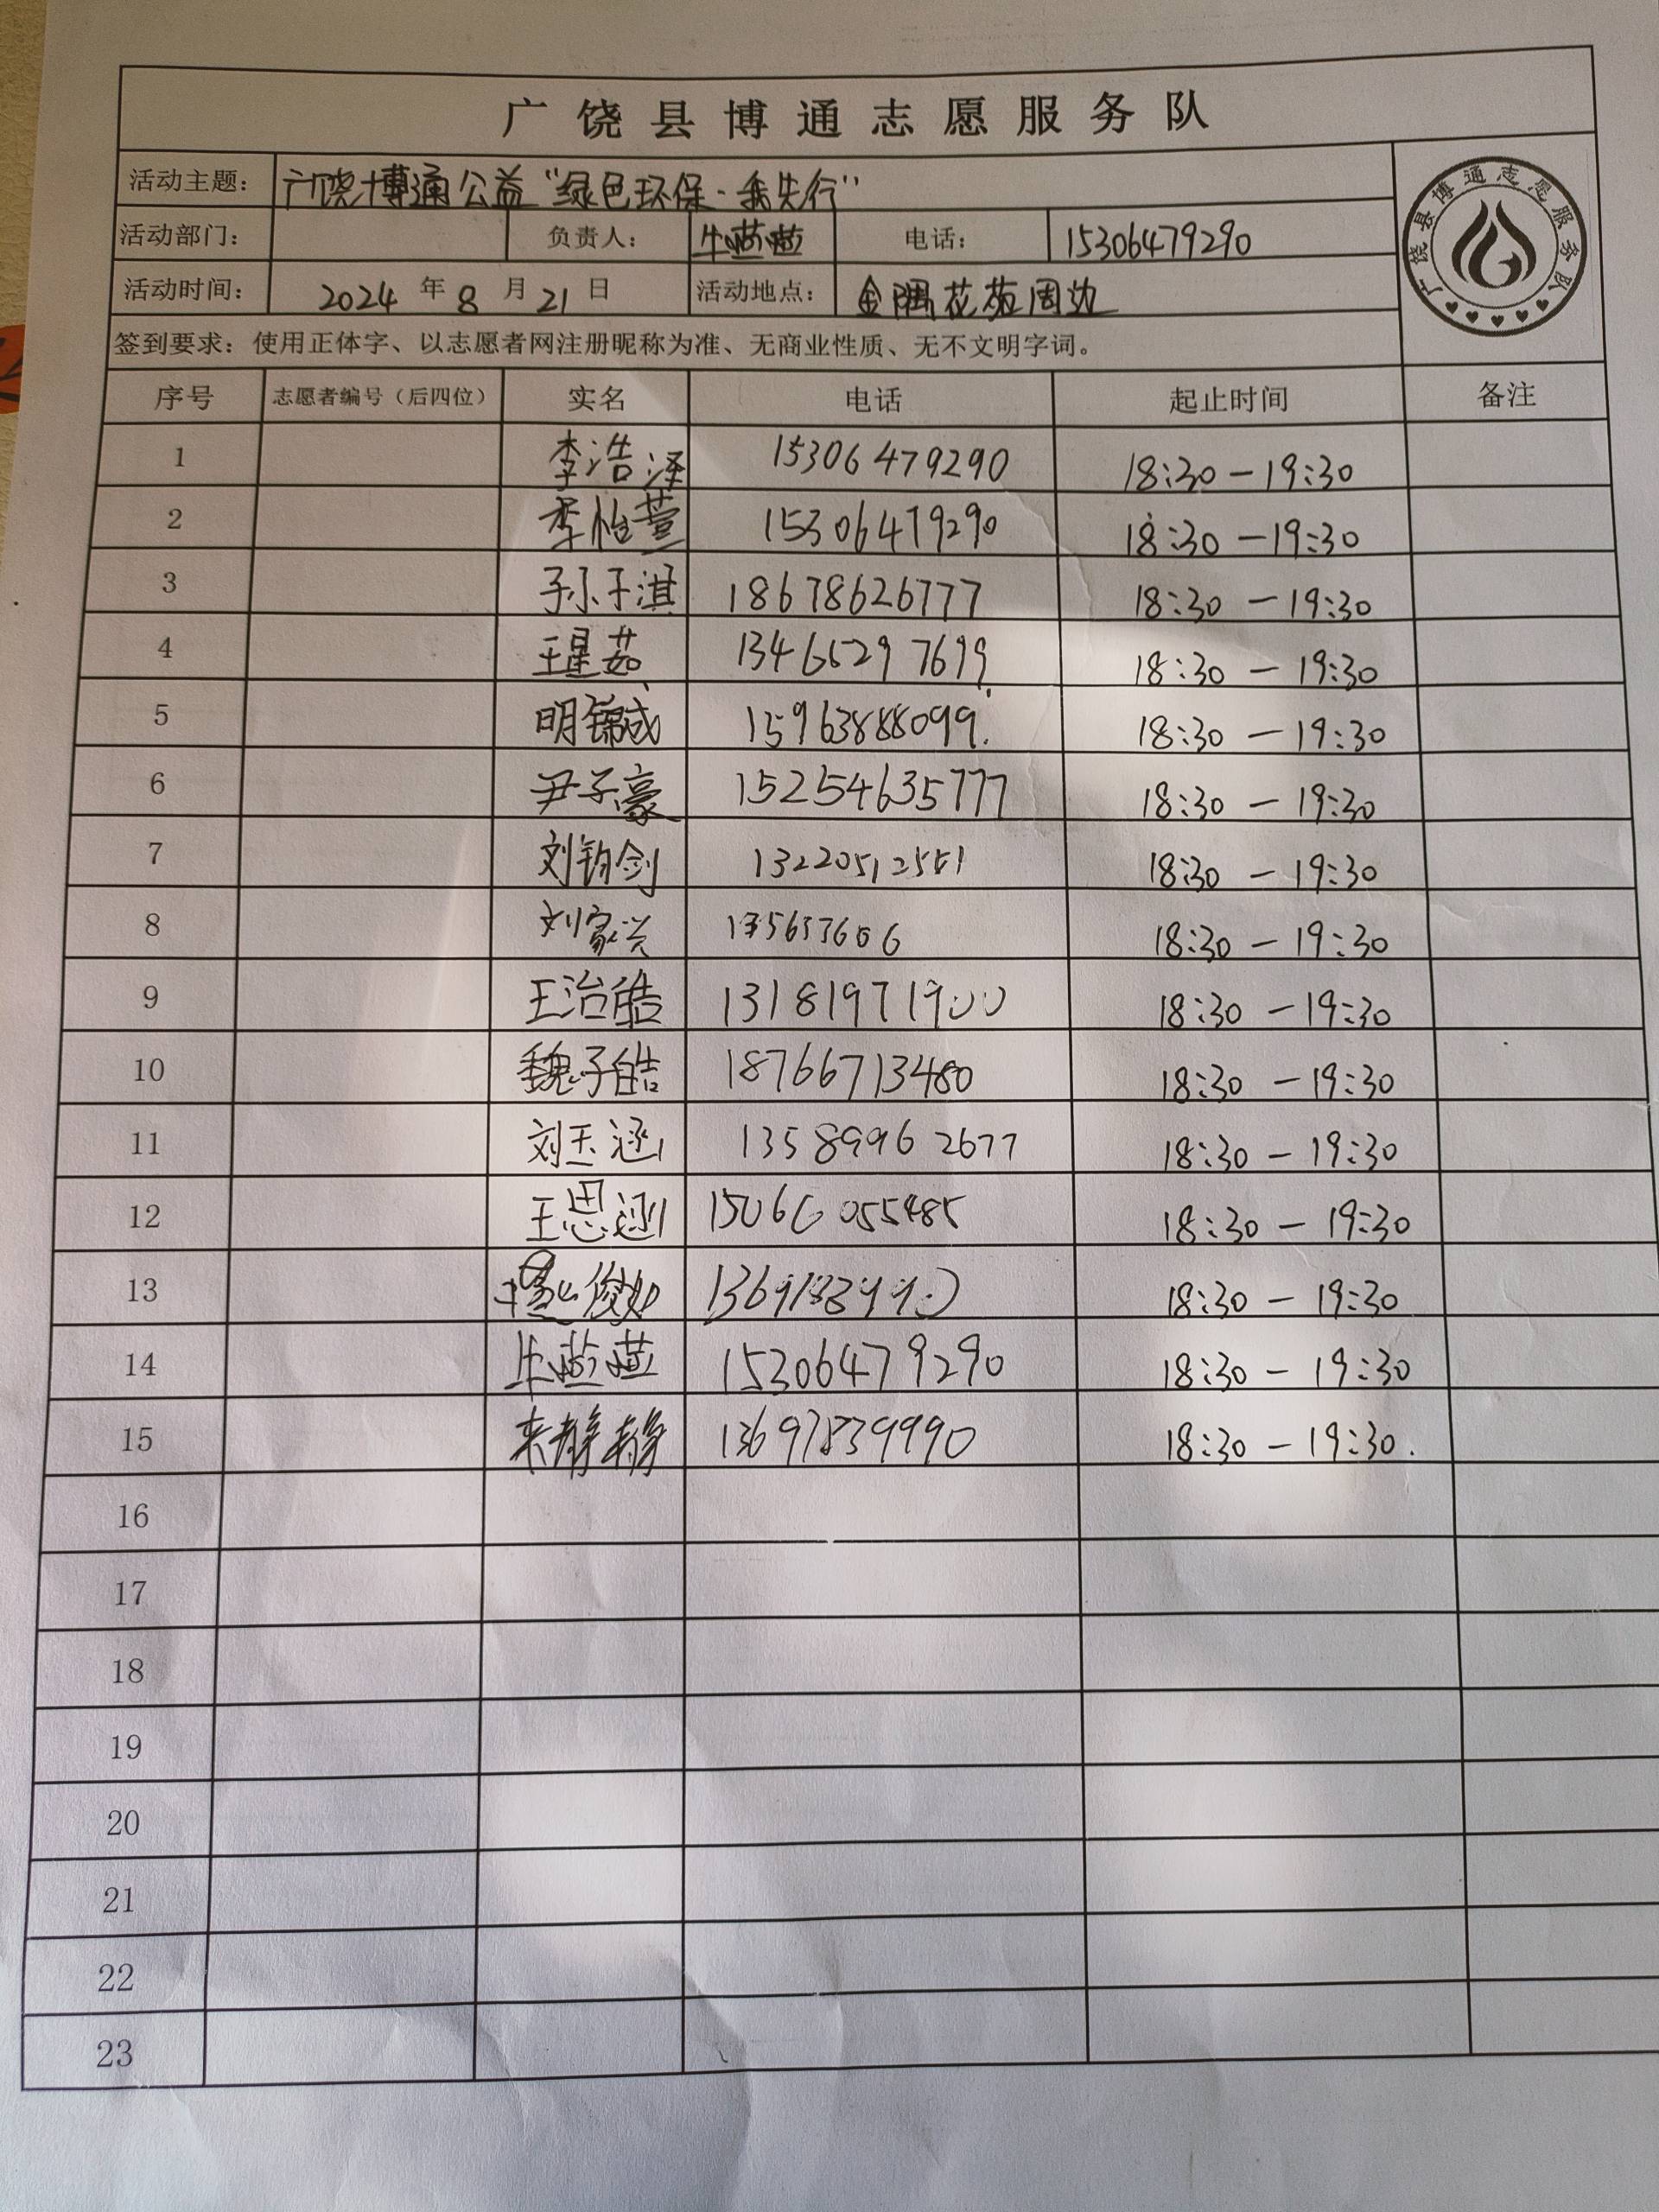 广饶县博通志愿服务队
活动主题： 广饶博通公益“绿色环保·我先行”
活动部门： 负责人： 牛苗苗 电话： 15306479290
活动时间： 2024 年 8 月 21 日 活动地点： 金隅花苑周边
广饶县博通志愿服务队
签到要求：使用正体字、以志愿者网注册昵称为准、无商业性质、无不文明字词。
序号 志愿者编号（后四位） 实名 电话 起止时间 备注
1 李浩泽 15306479290 18:30-19:30
2 李怡萱 15306479290 18:30-19:30
3 孙子淇 18678626777 18:30-19:30
4 王星茹 18:30-19:30
5 明锦成 15963888099 18:30-19:30
6 尹子豪 15254635777 18:30-19:30
7 刘钧剑 18:30-19:30
8 刘家兴 18:30-19:30
9 王治皓 13181971900 18:30-19:30
10 魏子皓 18766713480 18:30-19:30
11 刘玉涵 13589962677 18:30-19:30
12 王思涵 15066055485 18:30-19:30
13 18:30-19:30
14 牛苗苗 15306479290 18:30-19:30
15 来静静 13697839990 18:30-19:30.
16
17
18
19
20
21
22
23